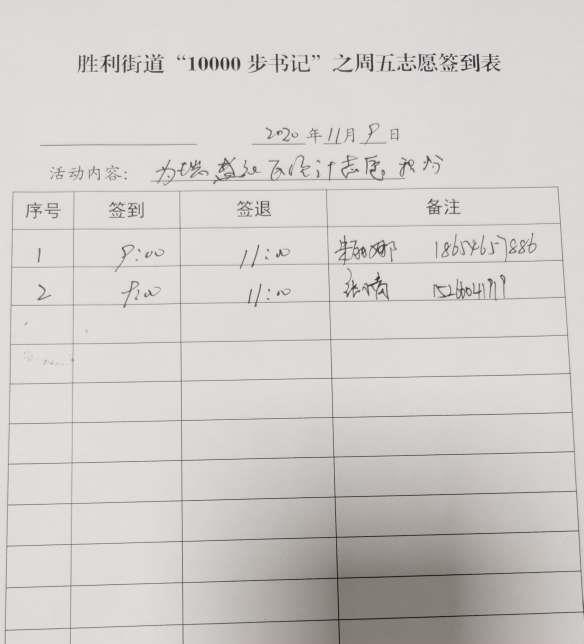 胜利街道“10000步书记”之周五志愿签到表
2020年11月9日
活动内容： 为 统计志愿 积分
序号 签到 签退 备注
1 9:00 11:00 18654657886
2 9:00 11:00 张